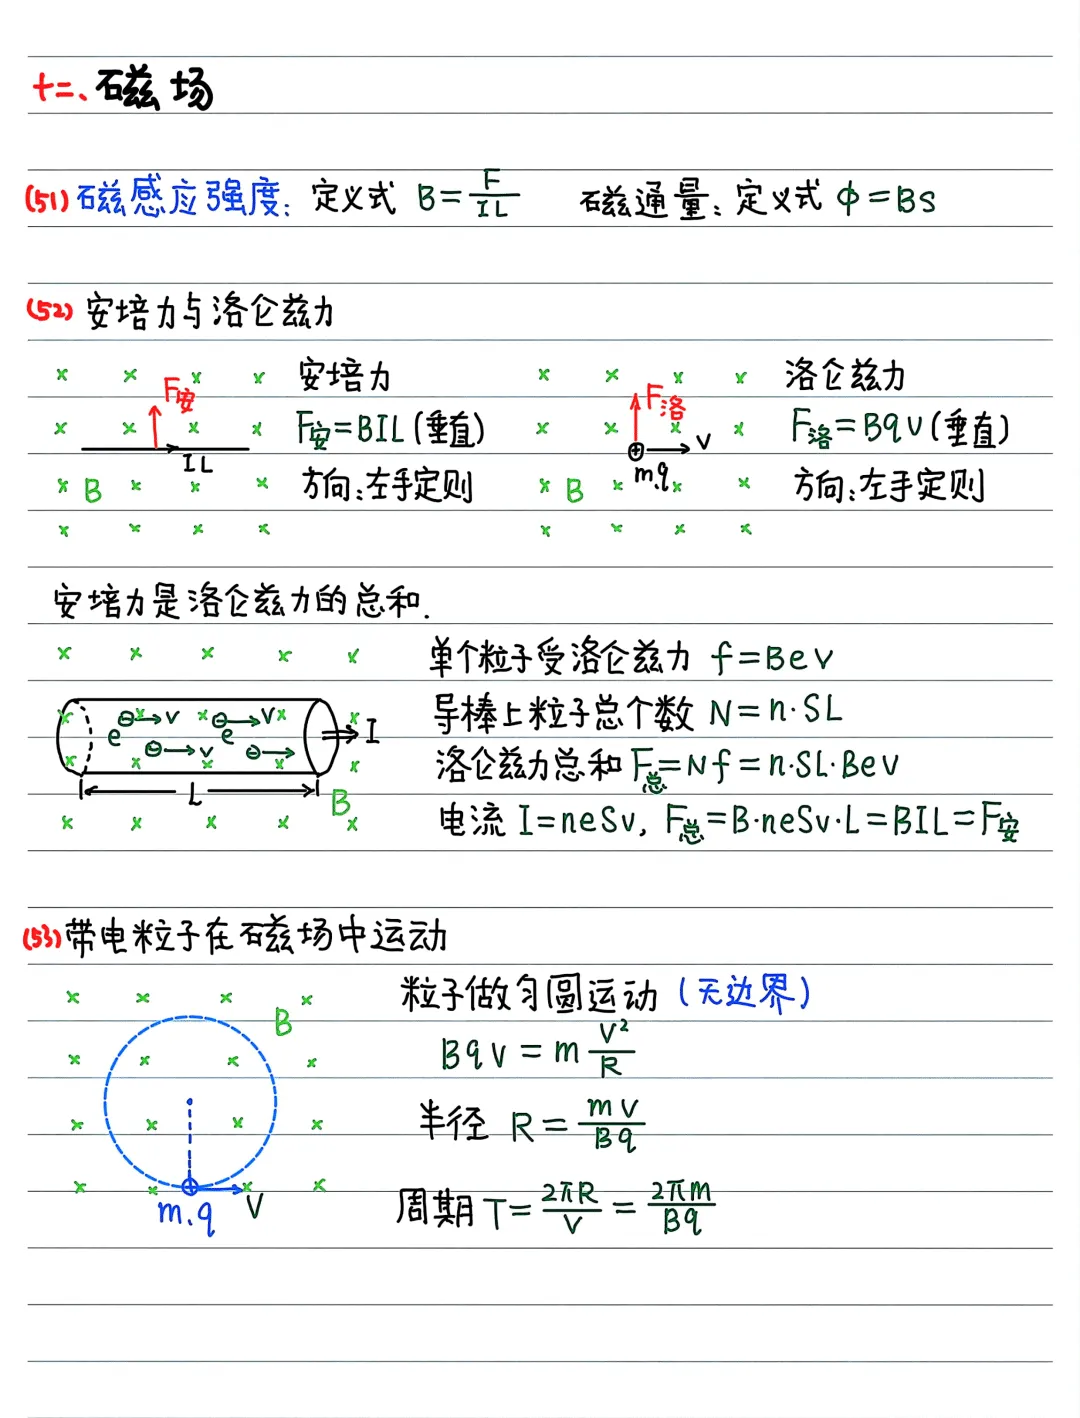 十二、磁场
(51) 磁感应强度: 定义式 B=F/IL 磁通量: 定义式 Φ=BS
(52) 安培力与洛仑兹力
F安
IL
B
安培力
F安=BIL(垂直)
方向:左手定则
F洛
V
m.q
B
洛仑兹力
F洛=BqV(垂直)
方向:左手定则
安培力是洛仑兹力的总和.
e v e v v
I
L
B
单个粒子受洛仑兹力 f=Bev
导棒上粒子总个数 N=n·SL
洛仑兹力总和 F总=Nf=n·SL·Bev
电流 I=neSv, F总=B·neSv·L=BIL=F安
(53) 带电粒子在磁场中运动
B
m.q V
粒子做匀圆运动 (无边界)
Bqv=m V²/R
半径 R=mv/Bq
周期 T=2πR/V=2πm/Bq